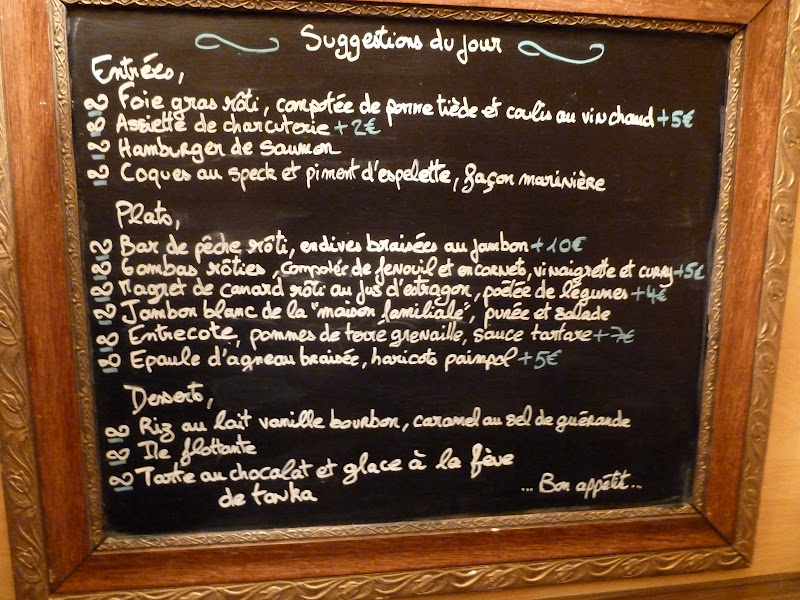 Suggestions du jour
Entrées,
Foie gras rôti, compotée de pomme tiède et coulis au vin chaud +5€
Assiette de charcuterie +2€
Hamburger de saumon
Coques au speck et piment d'espelette, façon marinière
Plats,
Bar de pêche rôti, endives braisées au jambon +10€
Gambas rôties, compotée de fenouil et encornets, vinaigrette et curry +5€
Magret de canard rôti au jus d'estragon, poêlée de légumes +4€
Jambon blanc de la "maison familiale", purée et salade
Entrecote, pommes de terre grenaille, sauce tartare +7€
Epaule d'agneau braisée, haricots paimpol +5€
Desserts,
Riz au lait vanille bourbon, caramel au sel de guérande
Ile flottante
Tarte au chocolat et glace à la fève
de tonka
...Bon appétit...